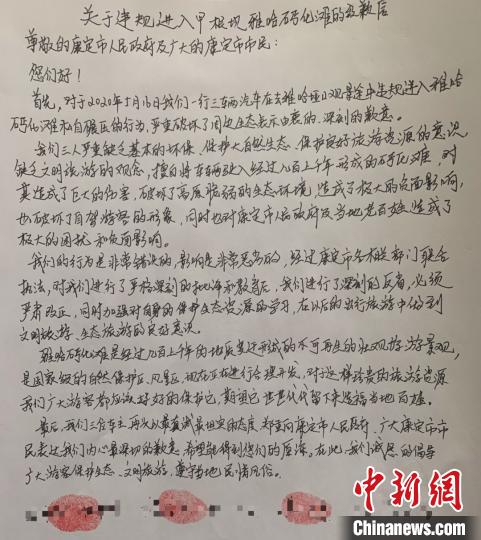 关于违规进入甲根坝雅哈钙化滩的致歉信
尊敬的康定市人民政府及广大的康定市市民:
您们好!
首先,对于2020年5月16日我们一行三辆汽车在去雅哈垭口观景途中违规进入雅哈
钙化滩私自碾压的行为,严重破坏了周边生态表示由衷的、深刻的歉意。
我们三人严重缺乏基本的环保、保护大自然生态、保护良好旅游资源的意识
缺乏文明旅游的观念,擅自将车辆驶入经过几百上千年形成的钙化滩,对
其造成了巨大的伤害,破坏了高原脆弱的生态环境,造成了极大的负面影响,
也破坏了自驾游客的形象,同时也对康定市人民政府及当地老百姓造成了
极大的困扰和负面影响。
我们的行为是非常错误的,影响是非常恶劣的,经过康定市各相关部门联合
执法,对我们进行了严格深刻的批评和教育,我们进行了深刻的反省,必须
严肃改正,同时加强对自身的保护生态资源的学习,在以后的出行旅游中做到
文明旅游、生态旅游的良好意识。
雅哈钙化滩是经过几百上千年的地质变迁形成的不可再生的壮观旅游景观,
是国家级的自然保护区、风景区,现在正在进行合理开发,对于这样珍贵的旅游资源
我们广大游客都应该好好的保护它,期望它世世代代留下来造福当地百姓。
最后,我们三位车主再次以最真诚最坦实的态度,郑重向康定市人民政府、广大康定市市
民表达我们内心最深切的歉意,希望能得到您们的原谅。在此,我们诚恳的倡导
广大游客保护生态、文明旅游,遵守当地民情风俗。
中新网
Chinanews.com